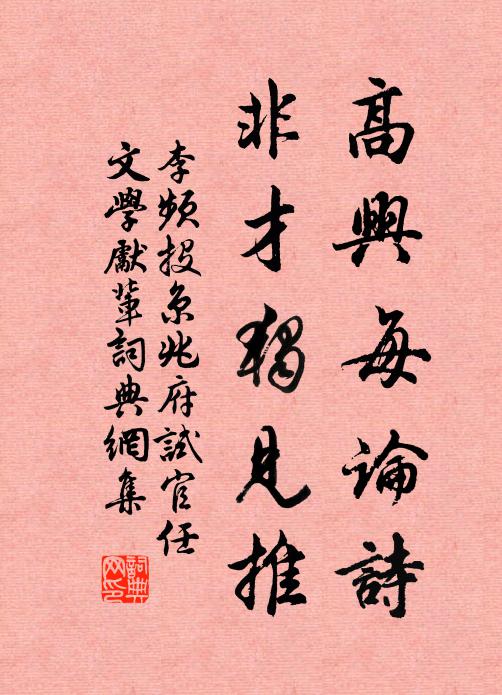 高興每論詩
非才獨見推
李頻投京兆府試官任
文學獻輩詞典網集
詞典網印